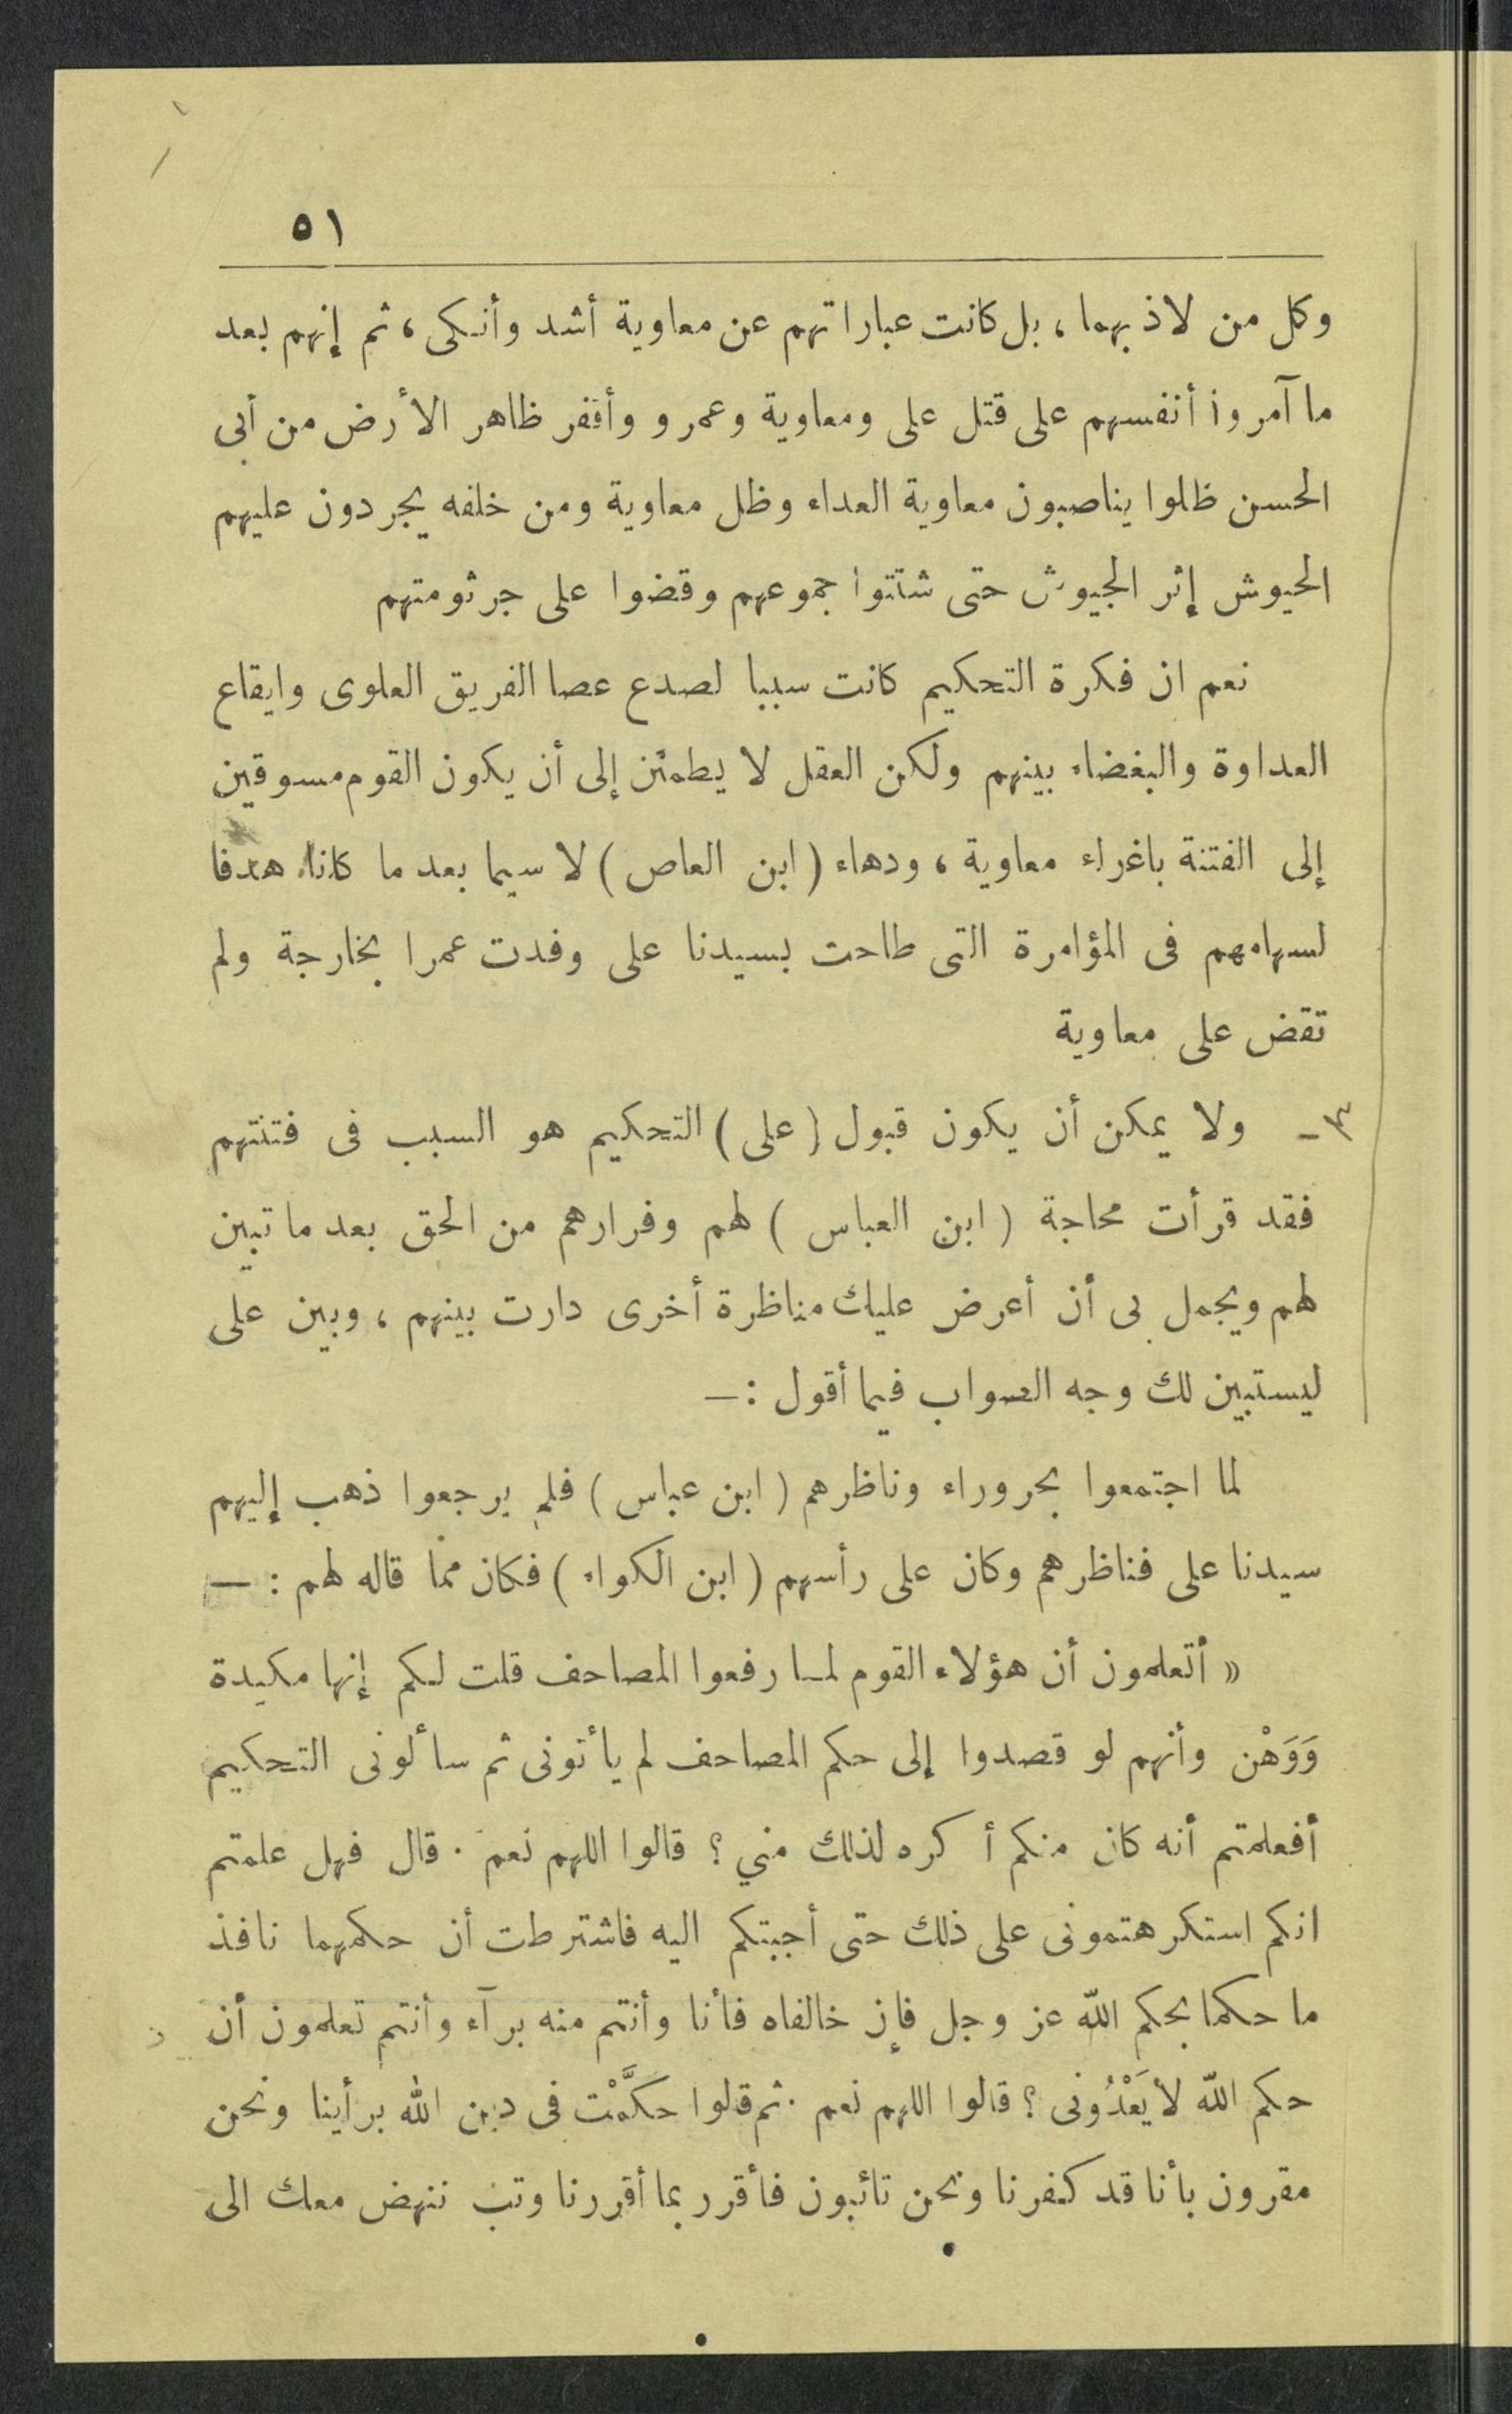 ٥١
وكل من لاذ بهما ، بل كانت عباراتهم عن معاوية أشد وأنكى ، ثم إنهم بعد
ما آمروا أنفسهم على قتل على ومعاوية وعمرو وأقفر ظاهر الأرض من أبى
الحسن ظلوا يناصبون معاوية العداء وظل معاوية ومن خلفه يجردون عليهم
الحيوش إثر الجيوش حتى شتتوا جموعهم وقضوا على جرثومتهم
نعم ان فكرة التحكيم كانت سببا لصدع عصا الفريق العلوى وايقاع
العداوة والبغضاء بينهم ولكن العقل لا يطمئن إلى أن يكون القوم مسوقين
إلى الفتنة باغراء معاوية ، ودهاء ( ابن العاص ) لا سيما بعد ما كانا هدفا
لسهامهم فى المؤامرة التى طاحت بسيدنا على وفدت عمرا بخارجة ولم
تقض على معاوية
٣ - ولا يمكن أن يكون قبول ( على ) التحكيم هو السبب فى فتنتهم
فقد قرأت محاجة ( ابن العباس ) لهم وفرارهم من الحق بعد ما تبين
لهم ويجمل بى أن أعرض عليك مناظرة أخرى دارت بينهم ، وبين على
ليستبين لك وجه الصواب فيما أقول : —
لما اجتمعوا بحروراء وناظرهم ( ابن عباس ) فلم يرجعوا ذهب إليهم
سيدنا على فناظرهم وكان على رأسهم ( ابن الكواء ) فكان مما قاله لهم : —
« أتعلمون أن هؤلاء القوم لما رفعوا المصاحف قلت لكم إنها مكيدة
وَوَهْن وأنهم لو قصدوا إلى حكم المصاحف لم يأتونى ثم سألونى التحكيم
أفعلمتم أنه كان منكم أكره لذلك مني ؟ قالوا اللهم نعم . قال فهل علمتم
انكم استكرهتمونى على ذلك حتى أجبتكم اليه فاشترطت أن حكمهما نافذ
ما حكما بحكم الله عز وجل فإن خالفاه فأنا وأنتم منه برآء وأنتم تعلمون أن
حكم الله لا يَعْدُونى ؟ قالوا اللهم نعم . ثم قالوا حَكَّمْت فى دين الله برأينا ونحن
مقرون بأنا قد كفرنا ونحن تائبون فأقرر بما أقررنا وتب ننهض معك الى